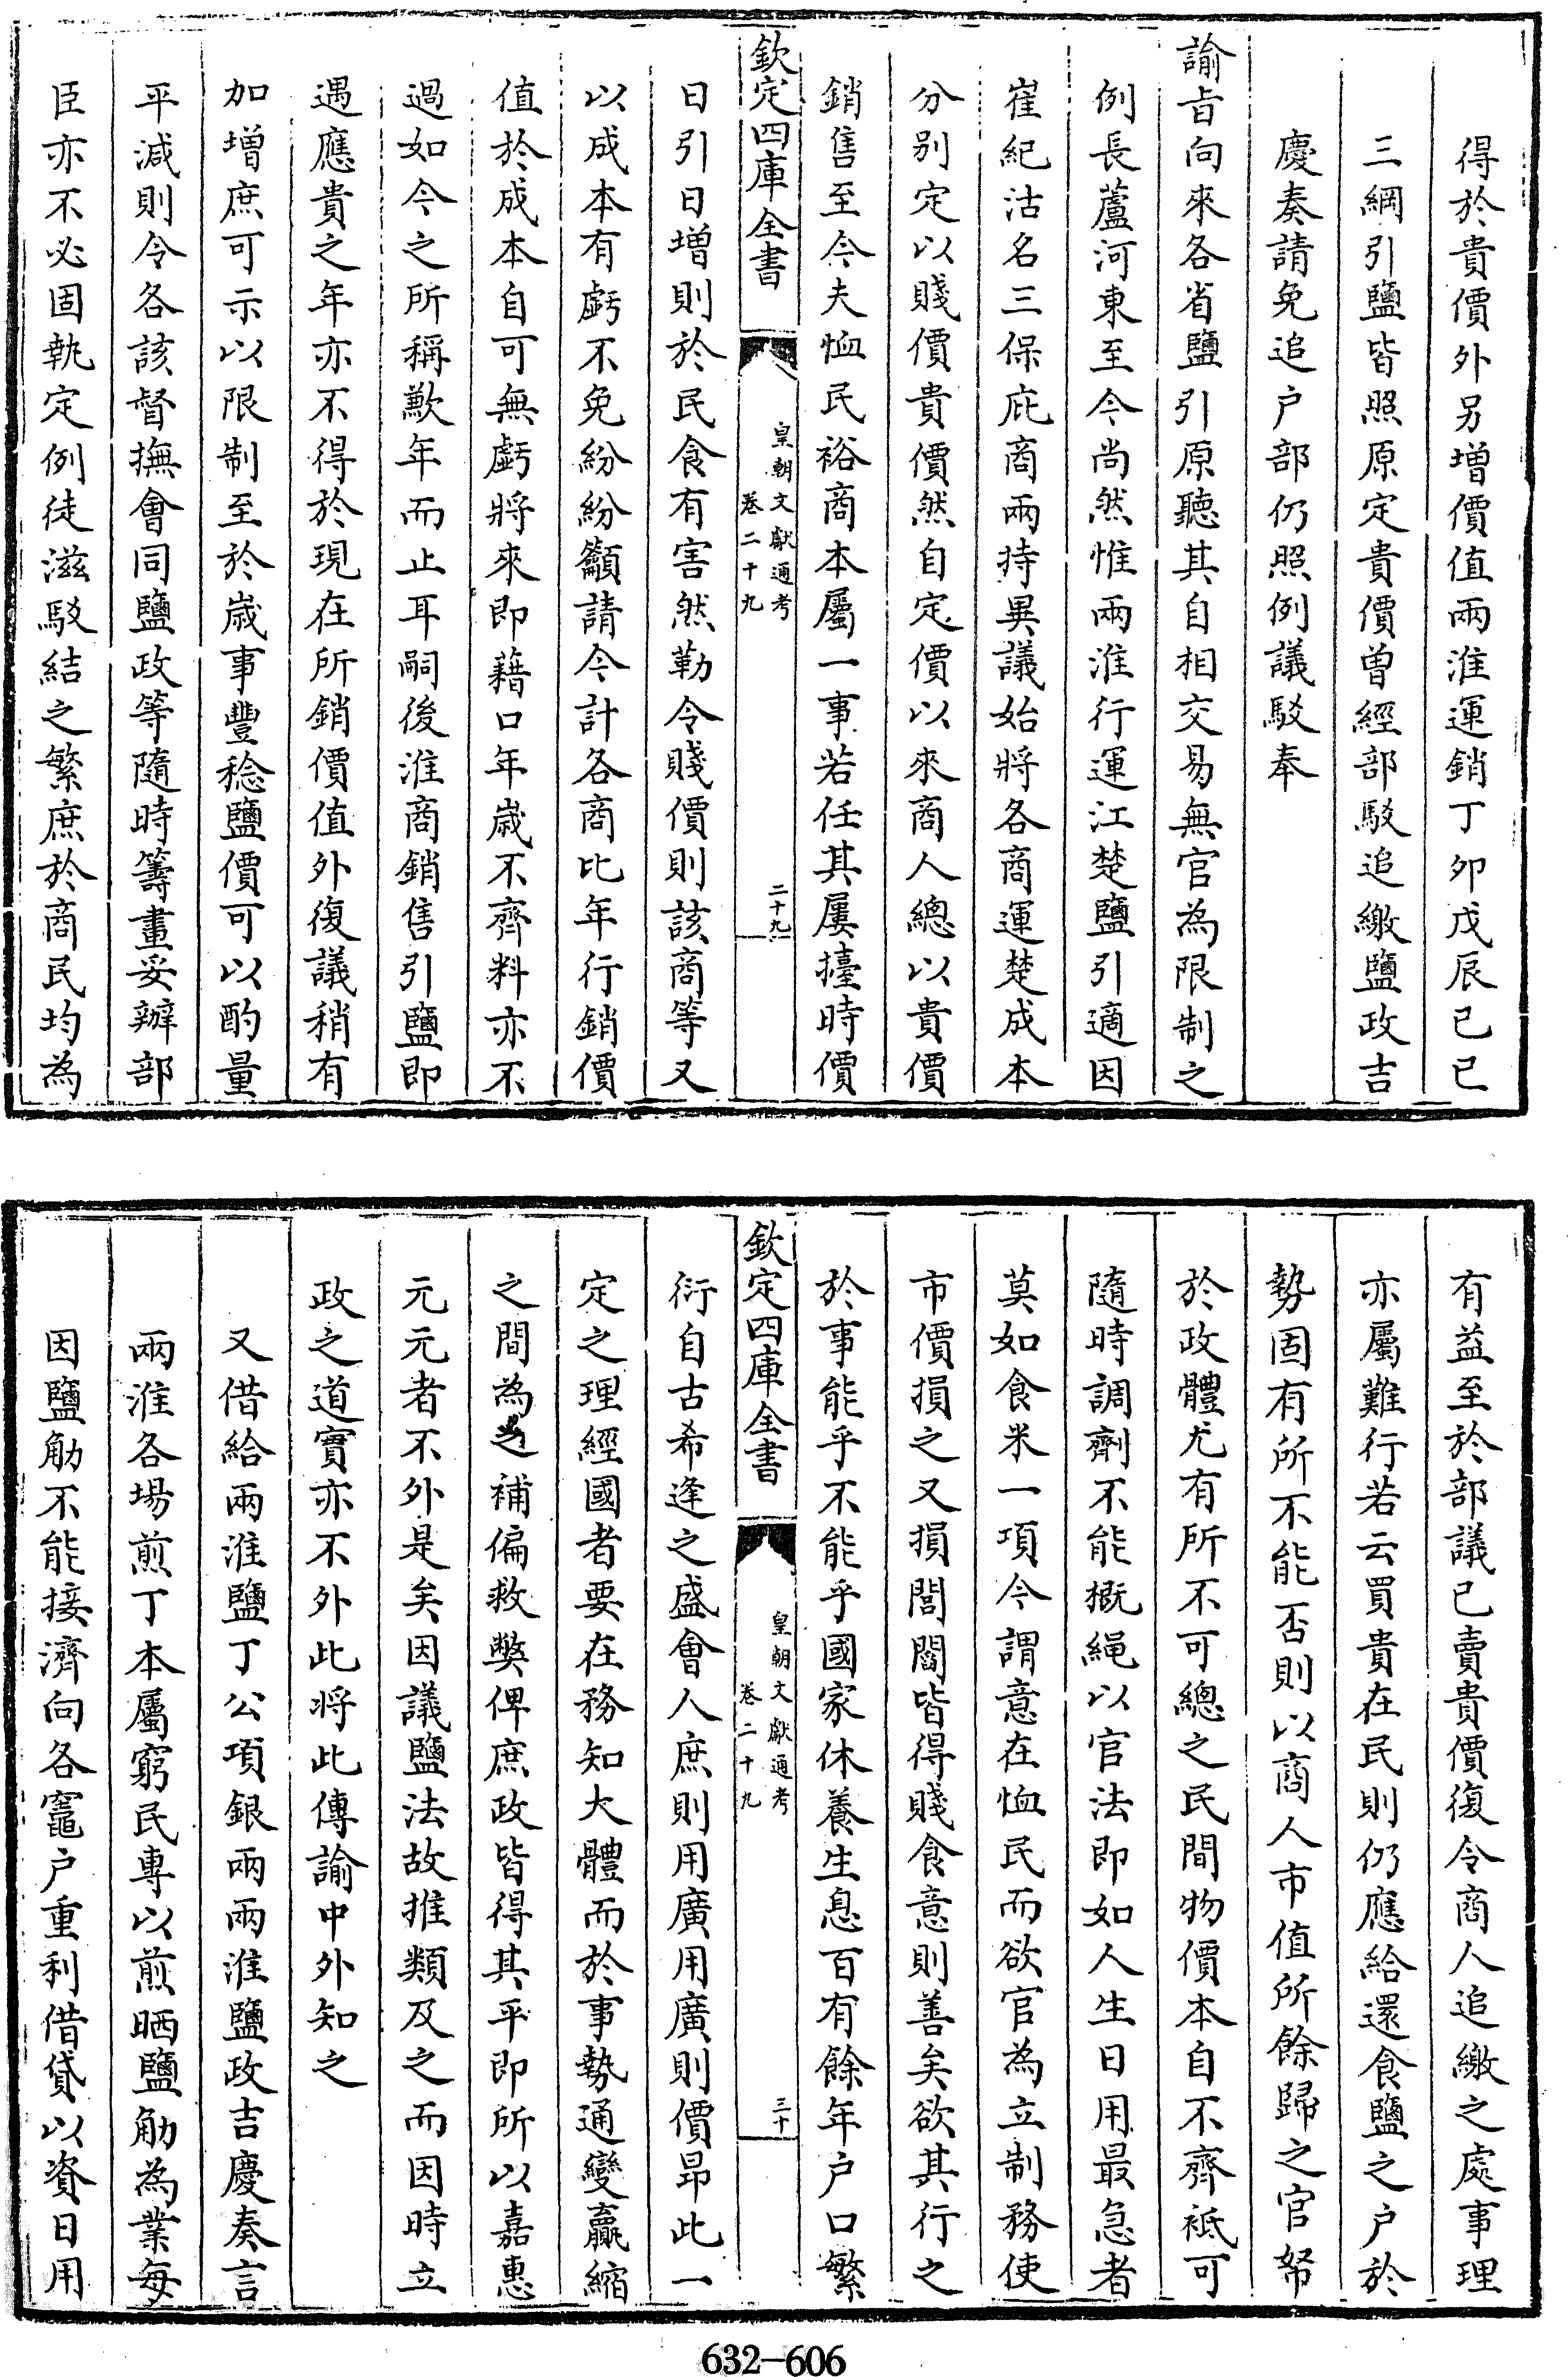 得於貴價外另增價值兩淮運銷丁卯戊辰己巳
三綱引鹽皆照原定貴價曾經部駁追繳鹽政吉
慶奏請免追户部仍照例議駁奉
諭旨向來各省鹽引原聽其自相交易無官為限制之
例長蘆河東至今尚然惟兩淮行運江楚鹽引適因
崔紀沽名三保庇商兩持異議始將各商運楚成本
分别定以賤價貴價然自定價以來商人總以貴價
銷售至今夫恤民裕商本屬一事若任其屢擡時價
欽定四庫全書
皇朝文獻通考
卷二十九
二十九
日引日增則於民食有害然勒令賤價則該商等又
以成本有虧不免紛紛籲請今計各商比年行銷價
值於成本自可無虧將來即藉口年歲不齊料亦不
過如今之所稱歉年而止耳嗣後淮商銷售引鹽即
遇應貴之年亦不得於現在所銷價值外復議稍有
加增庶可示以限制至於歲事豐稔鹽價可以酌量
平減則令各該督撫會同鹽政等隨時籌畫妥辦部
臣亦不必固執定例徒滋駁結之繁庶於商民均為
有益至於部議已賣貴價復令商人追繳之處事理
亦屬難行若云買貴在民則仍應給還食鹽之户於
勢固有所不能否則以商人市值所餘歸之官帑
於政體尤有所不可總之民間物價本自不齊祗可
隨時調劑不能概繩以官法即如人生日用最急者
莫如食米一項今謂意在恤民而欲官為立制務使
市價損之又損閭閻皆得賤食意則善矣欲其行之
於事能乎不能乎國家休養生息百有餘年户口繁
欽定四庫全書
皇朝文獻通考
卷二十九
三十
衍自古希逢之盛會人庶則用廣用廣則價昂此一
定之理經國者要在務知大體而於事勢通變贏縮
之間為之補偏救獘俾庶政皆得其平即所以嘉惠
元元者不外是矣因議鹽法故推類及之而因時立
政之道實亦不外此將此傳諭中外知之
又借給兩淮鹽丁公項銀兩兩淮鹽政吉慶奏言
兩淮各場煎丁本屬窮民專以煎晒鹽觔為業每
因鹽觔不能接濟向各竈户重利借貸以資日用
632-606